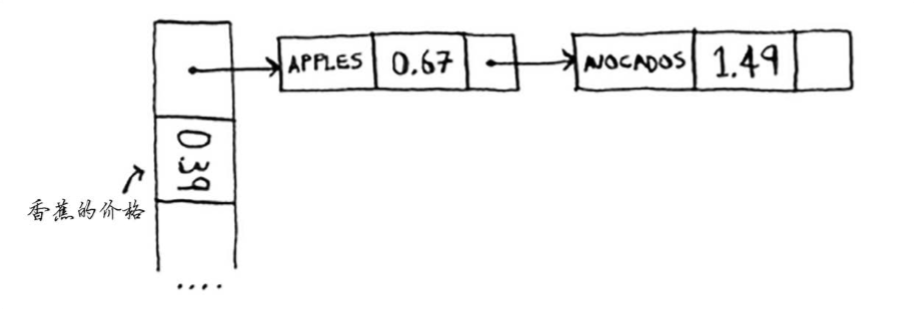 APPLES 0.67
AVOCADOS 1.49
0.39
香蕉的价格
....